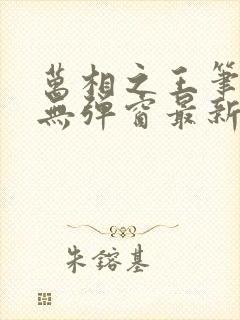 萬相之王筆
無彈窗最新
朱鎔基